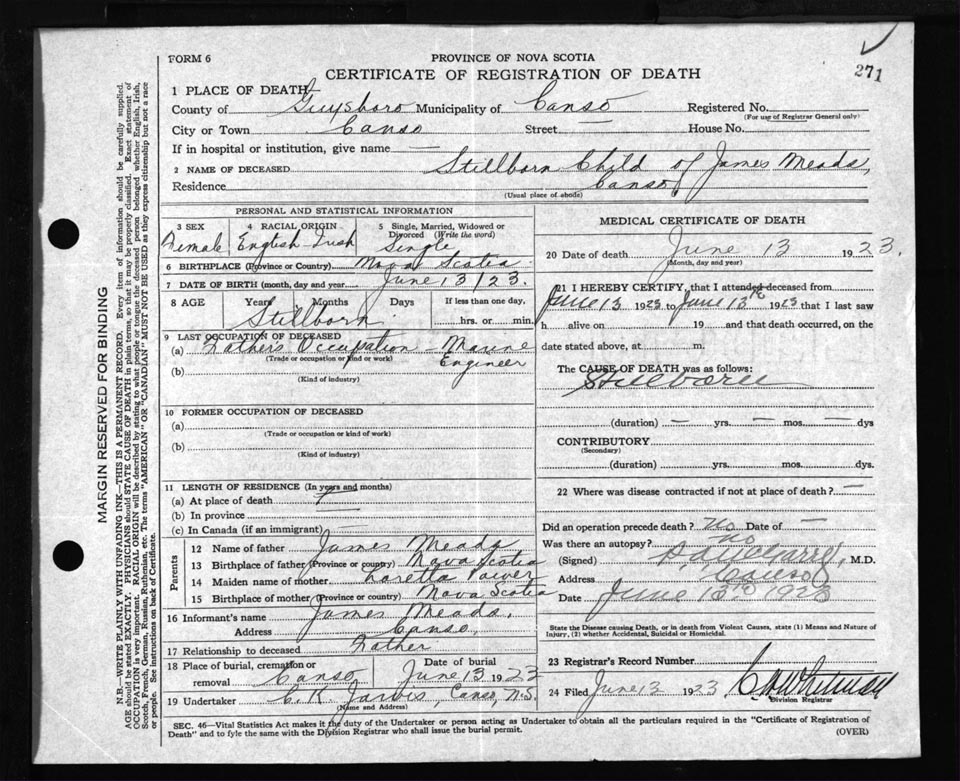 271
FORM 6
PROVINCE OF NOVA SCOTIA
CERTIFICATE OF REGISTRATION OF DEATH
1 PLACE OF DEATH
County of Guysboro Municipality of Canso Registered No.
(For use of Registrar General only)
City or Town Canso Street — House No.
If in hospital or institution, give name —
2 NAME OF DECEASED Stillborn Child of James Meads,
Residence Canso
(Usual place of abode)
PERSONAL AND STATISTICAL INFORMATION
3 SEX 4 RACIAL ORIGIN 5 Single, Married, Widowed or
Divorced (Write the word)
Female English Irish Single
6 BIRTHPLACE (Province or Country) Nova Scotia
7 DATE OF BIRTH (month, day and year) June 13/23.
8 AGE Years Months Days If less than one day,
Stillborn hrs. or min.
9 LAST OCCUPATION OF DECEASED
(a) Father's Occupation — Marine
(Trade or occupation or kind or work)
Engineer
(b)
(Kind of industry)
10 FORMER OCCUPATION OF DECEASED
(a)
(Trade or occupation or kind of work)
(b)
(Kind of industry)
11 LENGTH OF RESIDENCE (In years and months)
(a) At place of death
(b) In province
(c) In Canada (if an immigrant)
Parents
12 Name of father James Meads
13 Birthplace of father (Province or country) Nova Scotia
14 Maiden name of mother Loretta Power
15 Birthplace of mother (Province or country) Nova Scotia
16 Informant's name James Meads,
Address Canso,
17 Relationship to deceased Father
18 Place of burial, cremation or
removal Canso
Date of burial
June 13 1923
19 Undertaker C. K. Jarvis, Canso, N.S.
(Name and Address)
MEDICAL CERTIFICATE OF DEATH
20 Date of death June 13 1923.
(Month, day and year)
21 I HEREBY CERTIFY, that I attended deceased from
June 13 1923 to June 13th 1923 that I last saw
h alive on 19 and that death occurred, on the
date stated above, at m.
The CAUSE OF DEATH was as follows:
Stillborn
(duration) — yrs. — mos. — dys
CONTRIBUTORY
(Secondary)
(duration) yrs. mos. dys.
22 Where was disease contracted if not at place of death? —
Did an operation precede death? no Date of —
Was there an autopsy? no
(Signed) M.D.
Address Canso
Date June 13th 1923
State the Disease causing Death, or in death from Violent Causes, state (1) Means and Nature of
Injury, (2) whether Accidental, Suicidal or Homicidal.
23 Registrar's Record Number
24 Filed June 13 1923
Division Registrar
SEC. 46—Vital Statistics Act makes it the duty of the Undertaker or person acting as Undertaker to obtain all the particulars required in the "Certificate of Registration of
Death" and to fyle the same with the Division Registrar who shall issue the burial permit.
(OVER)
MARGIN RESERVED FOR BINDING
N.B.—WRITE PLAINLY WITH UNFADING INK—THIS IS A PERMANENT RECORD. Every item of information should be carefully supplied.
AGE should be stated EXACTLY. PHYSICIANS should STATE CAUSE OF DEATH in plain terms, so that it may be properly classified. Exact statement of
OCCUPATION is very important. RACIAL ORIGIN will be described by stating to what people or tongue the deceased person belonged whether English, Irish,
Scotch, French, German, Russian, Ruthenian, etc. The terms "AMERICAN" or "CANADIAN" MUST NOT BE USED as they express citizenship but not a race
or people. See instructions on back of Certificate.